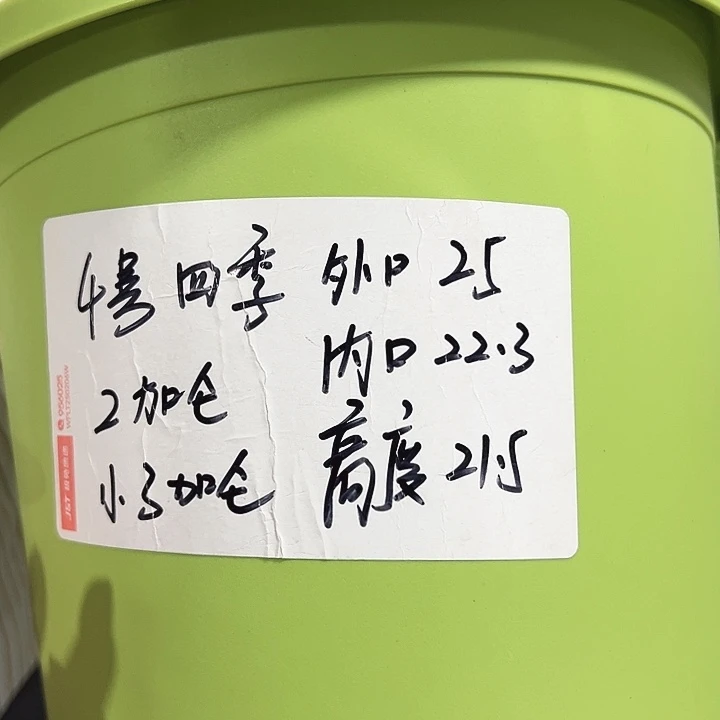 4号四季 外口 25
内口 22.3
2加仑
小3加仑 高度 21.5
J&T 极兔速递
956025